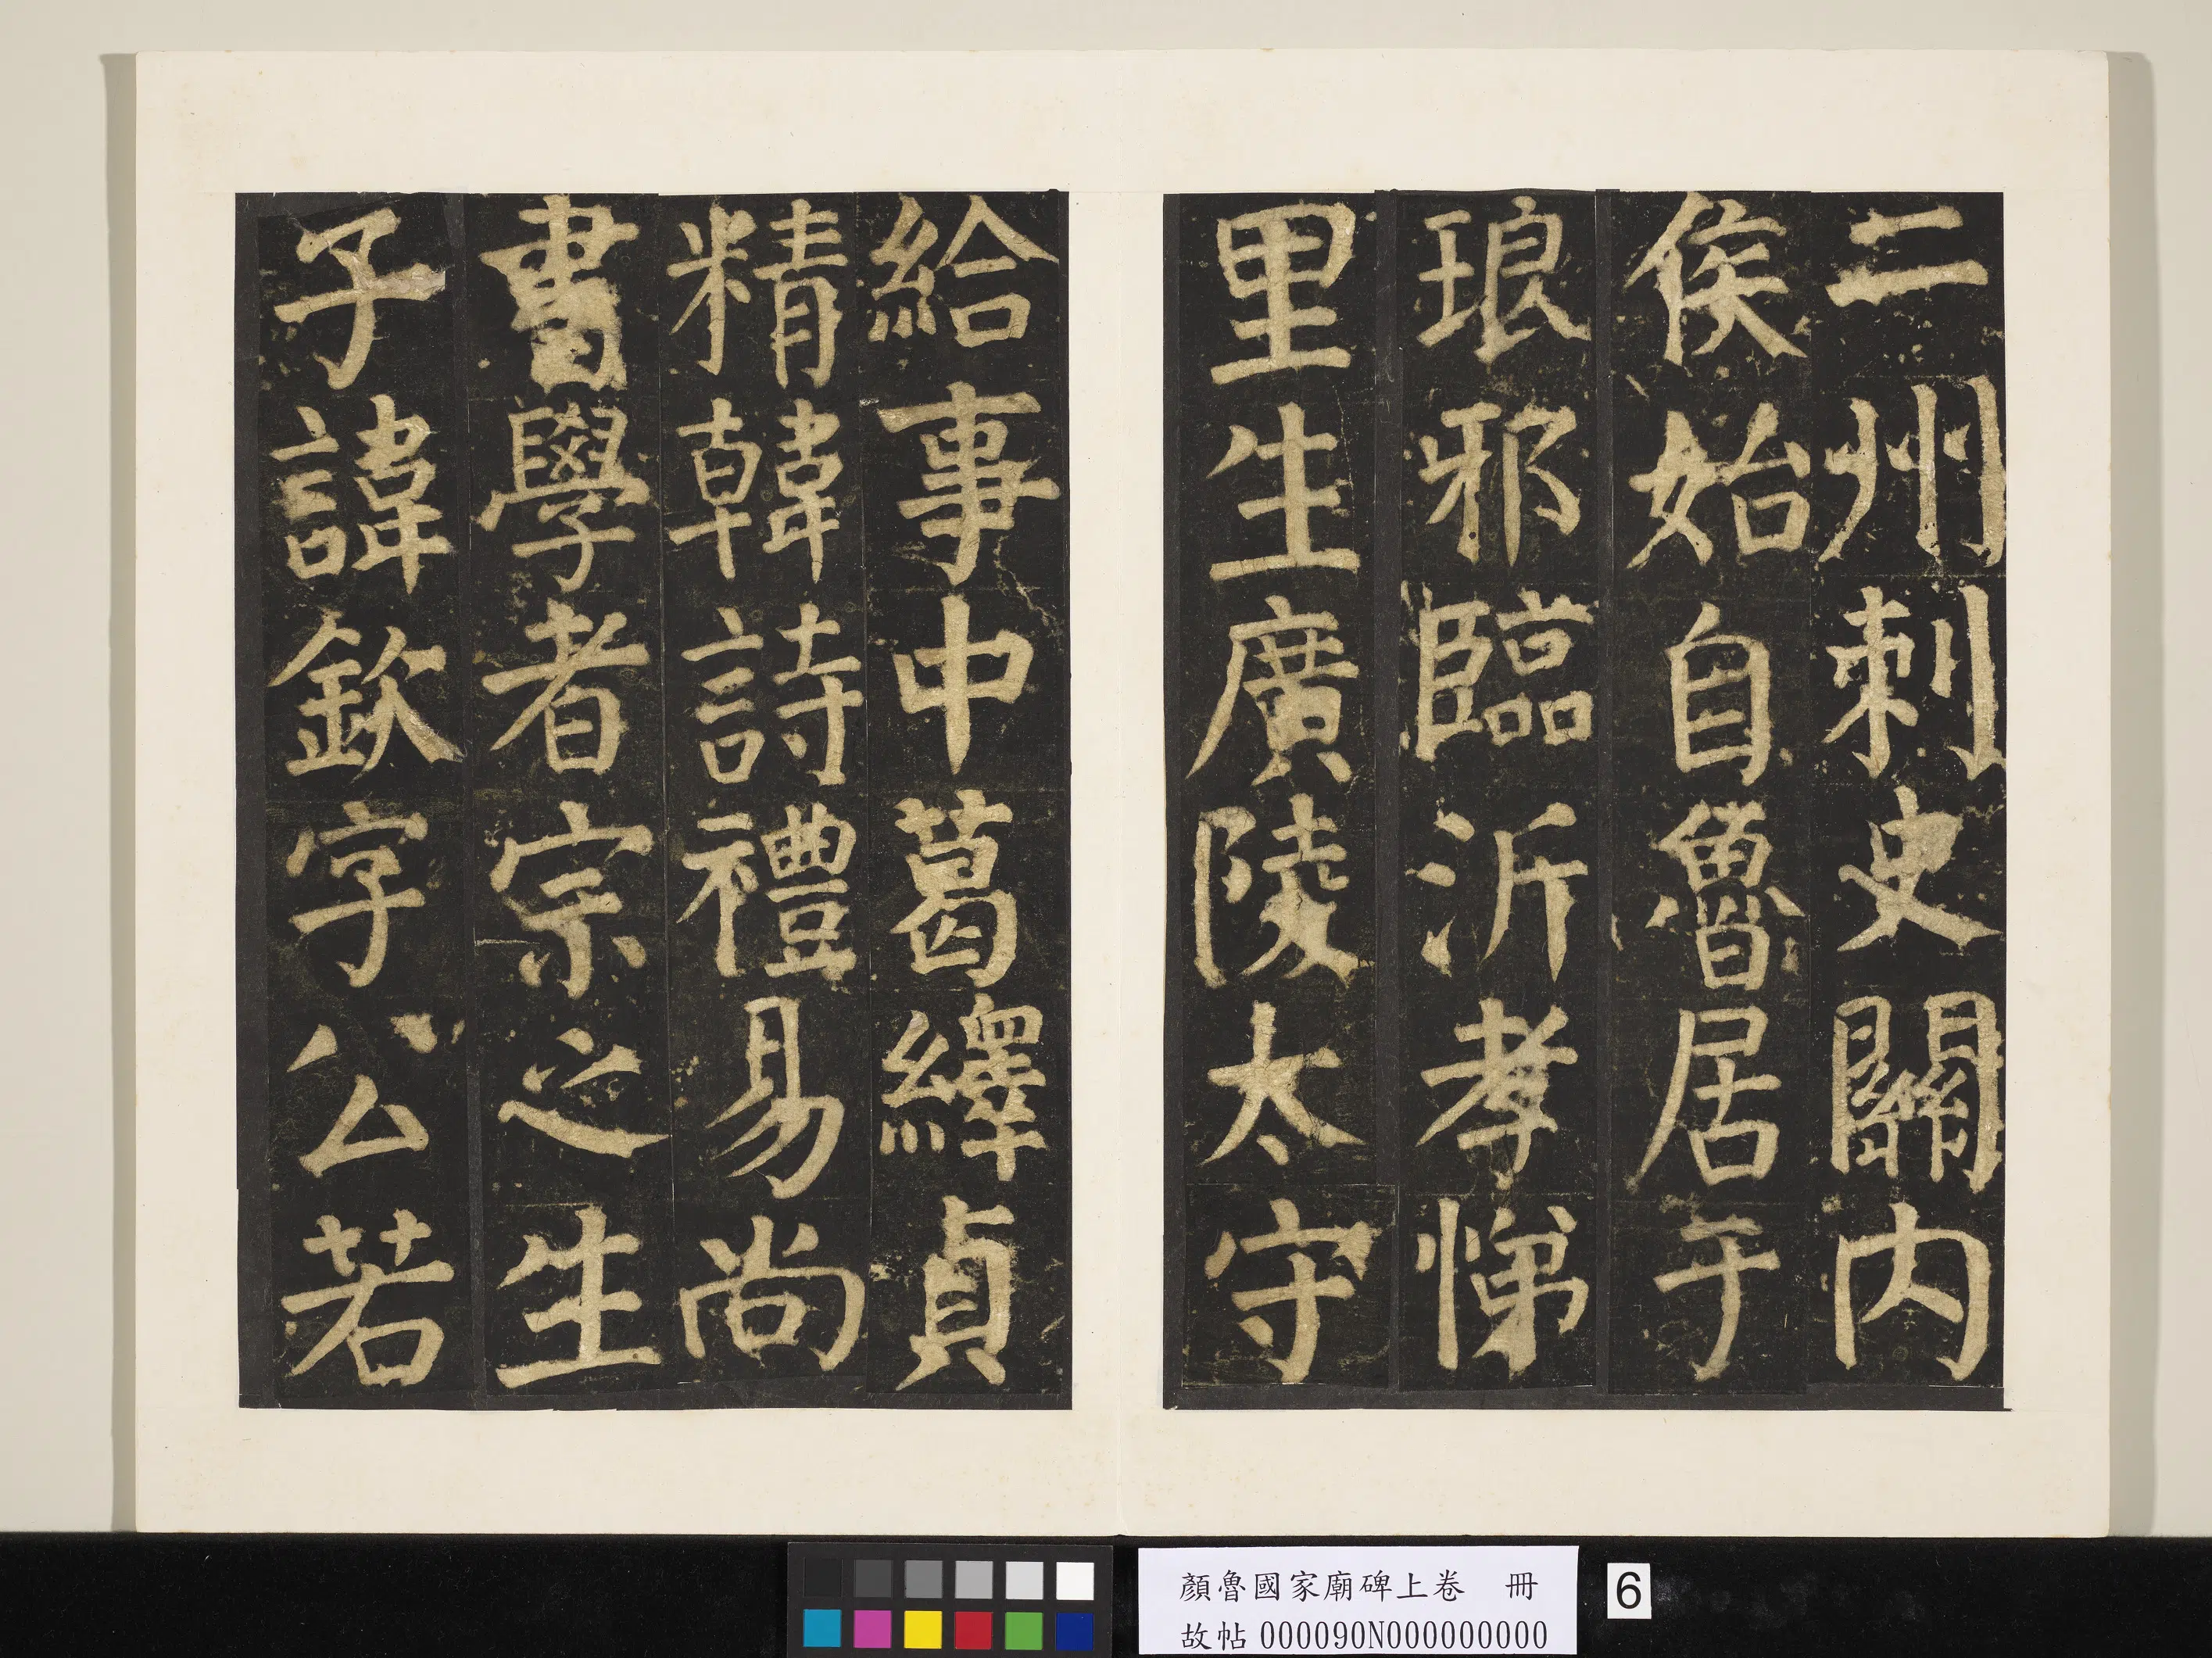 二州刺史關內
侯始自魯居于
琅邪臨沂孝悌
里生廣陵太守
給事中葛繹貞
精韓詩禮易尚
書學者宗之生
子諱欽字公若
顏魯國家廟碑上卷 冊
故帖 000090N000000000
6